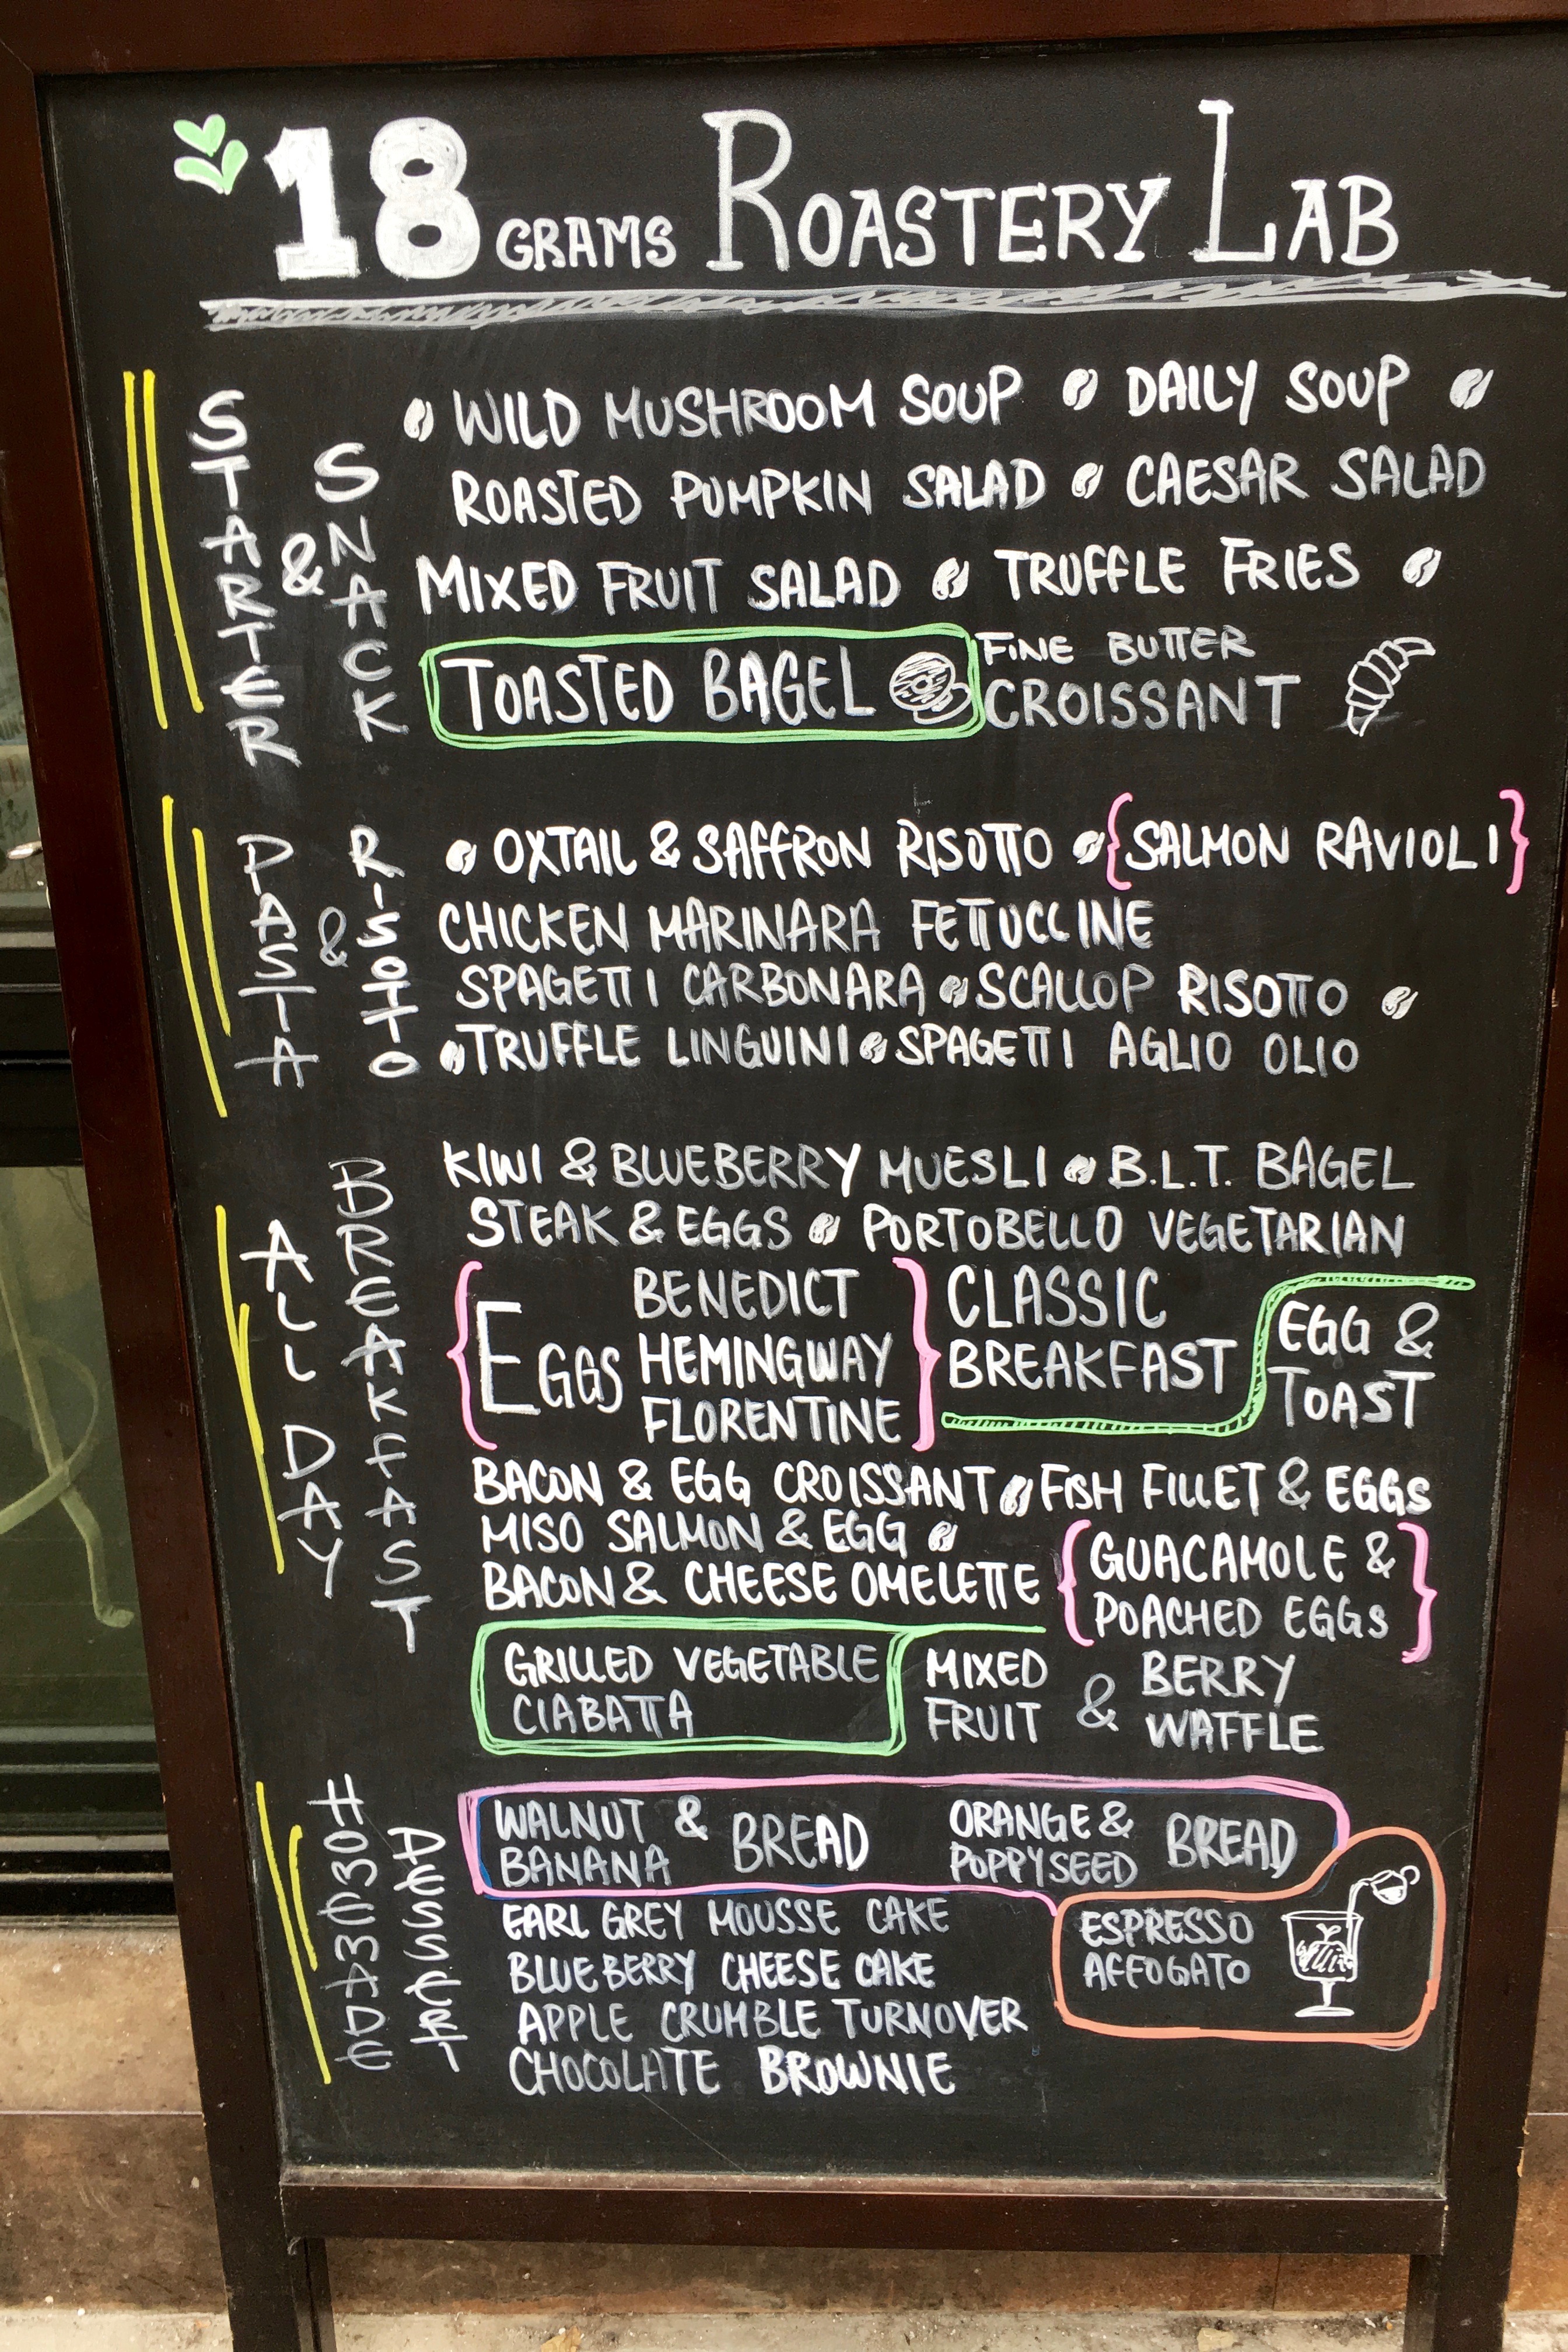 18 GRAMS ROASTERY LAB
STARTER & SNACK
WILD MUSHROOM SOUP DAILY SOUP
ROASTED PUMPKIN SALAD CAESAR SALAD
MIXED FRUIT SALAD TRUFFLE FRIES
TOASTED BAGEL
FINE BUTTER
CROISSANT
PASTA & RISOTTO
OXTAIL & SAFFRON RISOTTO {SALMON RAVIOLI}
CHICKEN MARINARA FETTUCCINE
SPAGETTI CARBONARA SCALLOP RISOTTO
TRUFFLE LINGUINI SPAGETTI AGLIO OLIO
ALL DAY BREAKFAST
KIWI & BLUEBERRY MUESLI B.L.T. BAGEL
STEAK & EGGS PORTOBELLO VEGETARIAN
{EGGS
BENEDICT
HEMINGWAY
FLORENTINE}
CLASSIC
BREAKFAST
EGG &
TOAST
BACON & EGG CROISSANT FISH FILLET & EGGS
MISO SALMON & EGG
BACON & CHEESE OMELETTE
{GUACAMOLE &
POACHED EGGS}
GRILLED VEGETABLE
CIABATTA
MIXED
FRUIT
&
BERRY
WAFFLE
HOMEMADE DESSERT
WALNUT &
BANANA
BREAD
ORANGE &
POPPYSEED
BREAD
EARL GREY MOUSSE CAKE
BLUEBERRY CHEESE CAKE
APPLE CRUMBLE TURNOVER
CHOCOLATE BROWNIE
ESPRESSO
AFFOGATO